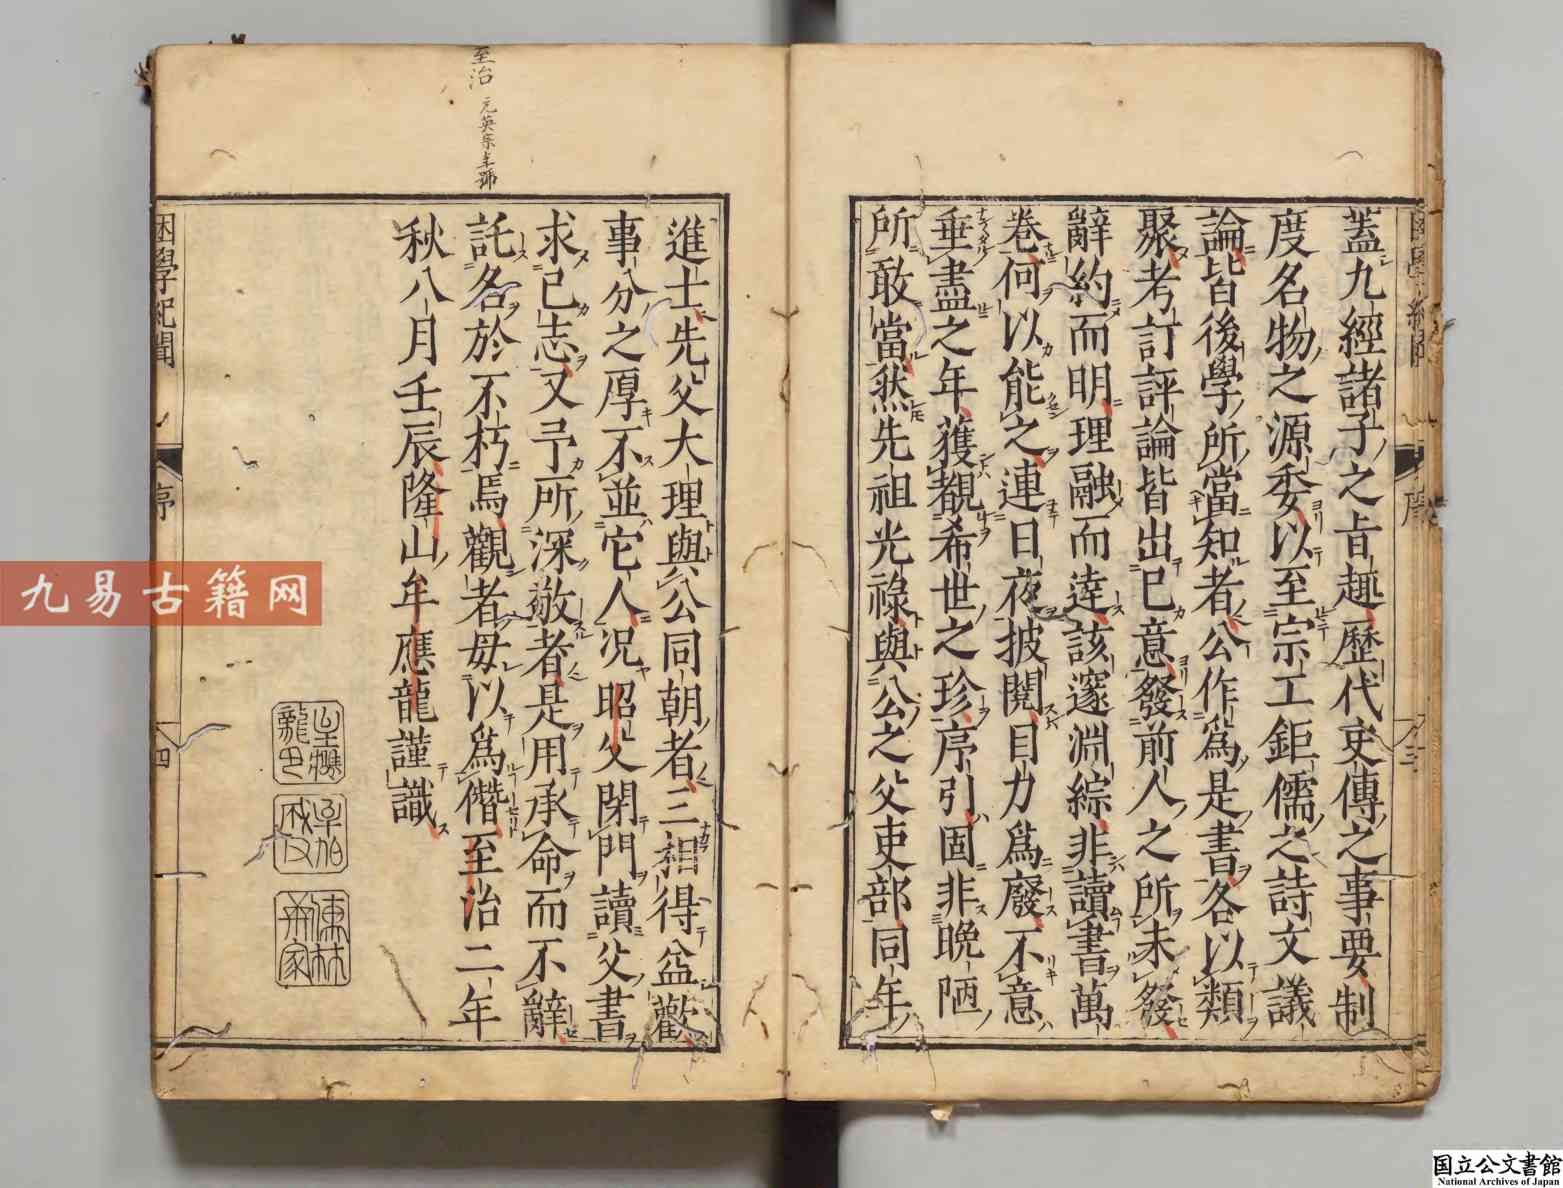 蓋九經諸子之旨趣歷代史傳之事要制
度名物之源委以至宗工鉅儒之詩文議
論皆後學所當知者公作爲是書各以類
聚考訂評論皆出己意發前人之所未發
辭約而明理融而達該邃淵綜非讀書萬
卷何以能之連日夜披閱目力爲廢不意
垂盡之年獲覩希世之珍序引固非晩陋
所敢當然先祖光祿與公之父吏部同年
進士先父大理與公同朝者三相得益歡
事分之厚不並它人況昭父閉門讀父書
求己志又予所深敬者是用承命而不辭
託名於不朽焉觀者毋以爲僭至治二年
秋八月壬辰隆山牟應龍謹識
至治 元英宗年號
困學紀聞
序
四
序
三
九易古籍网
国立公文書館
National Archives of Japan